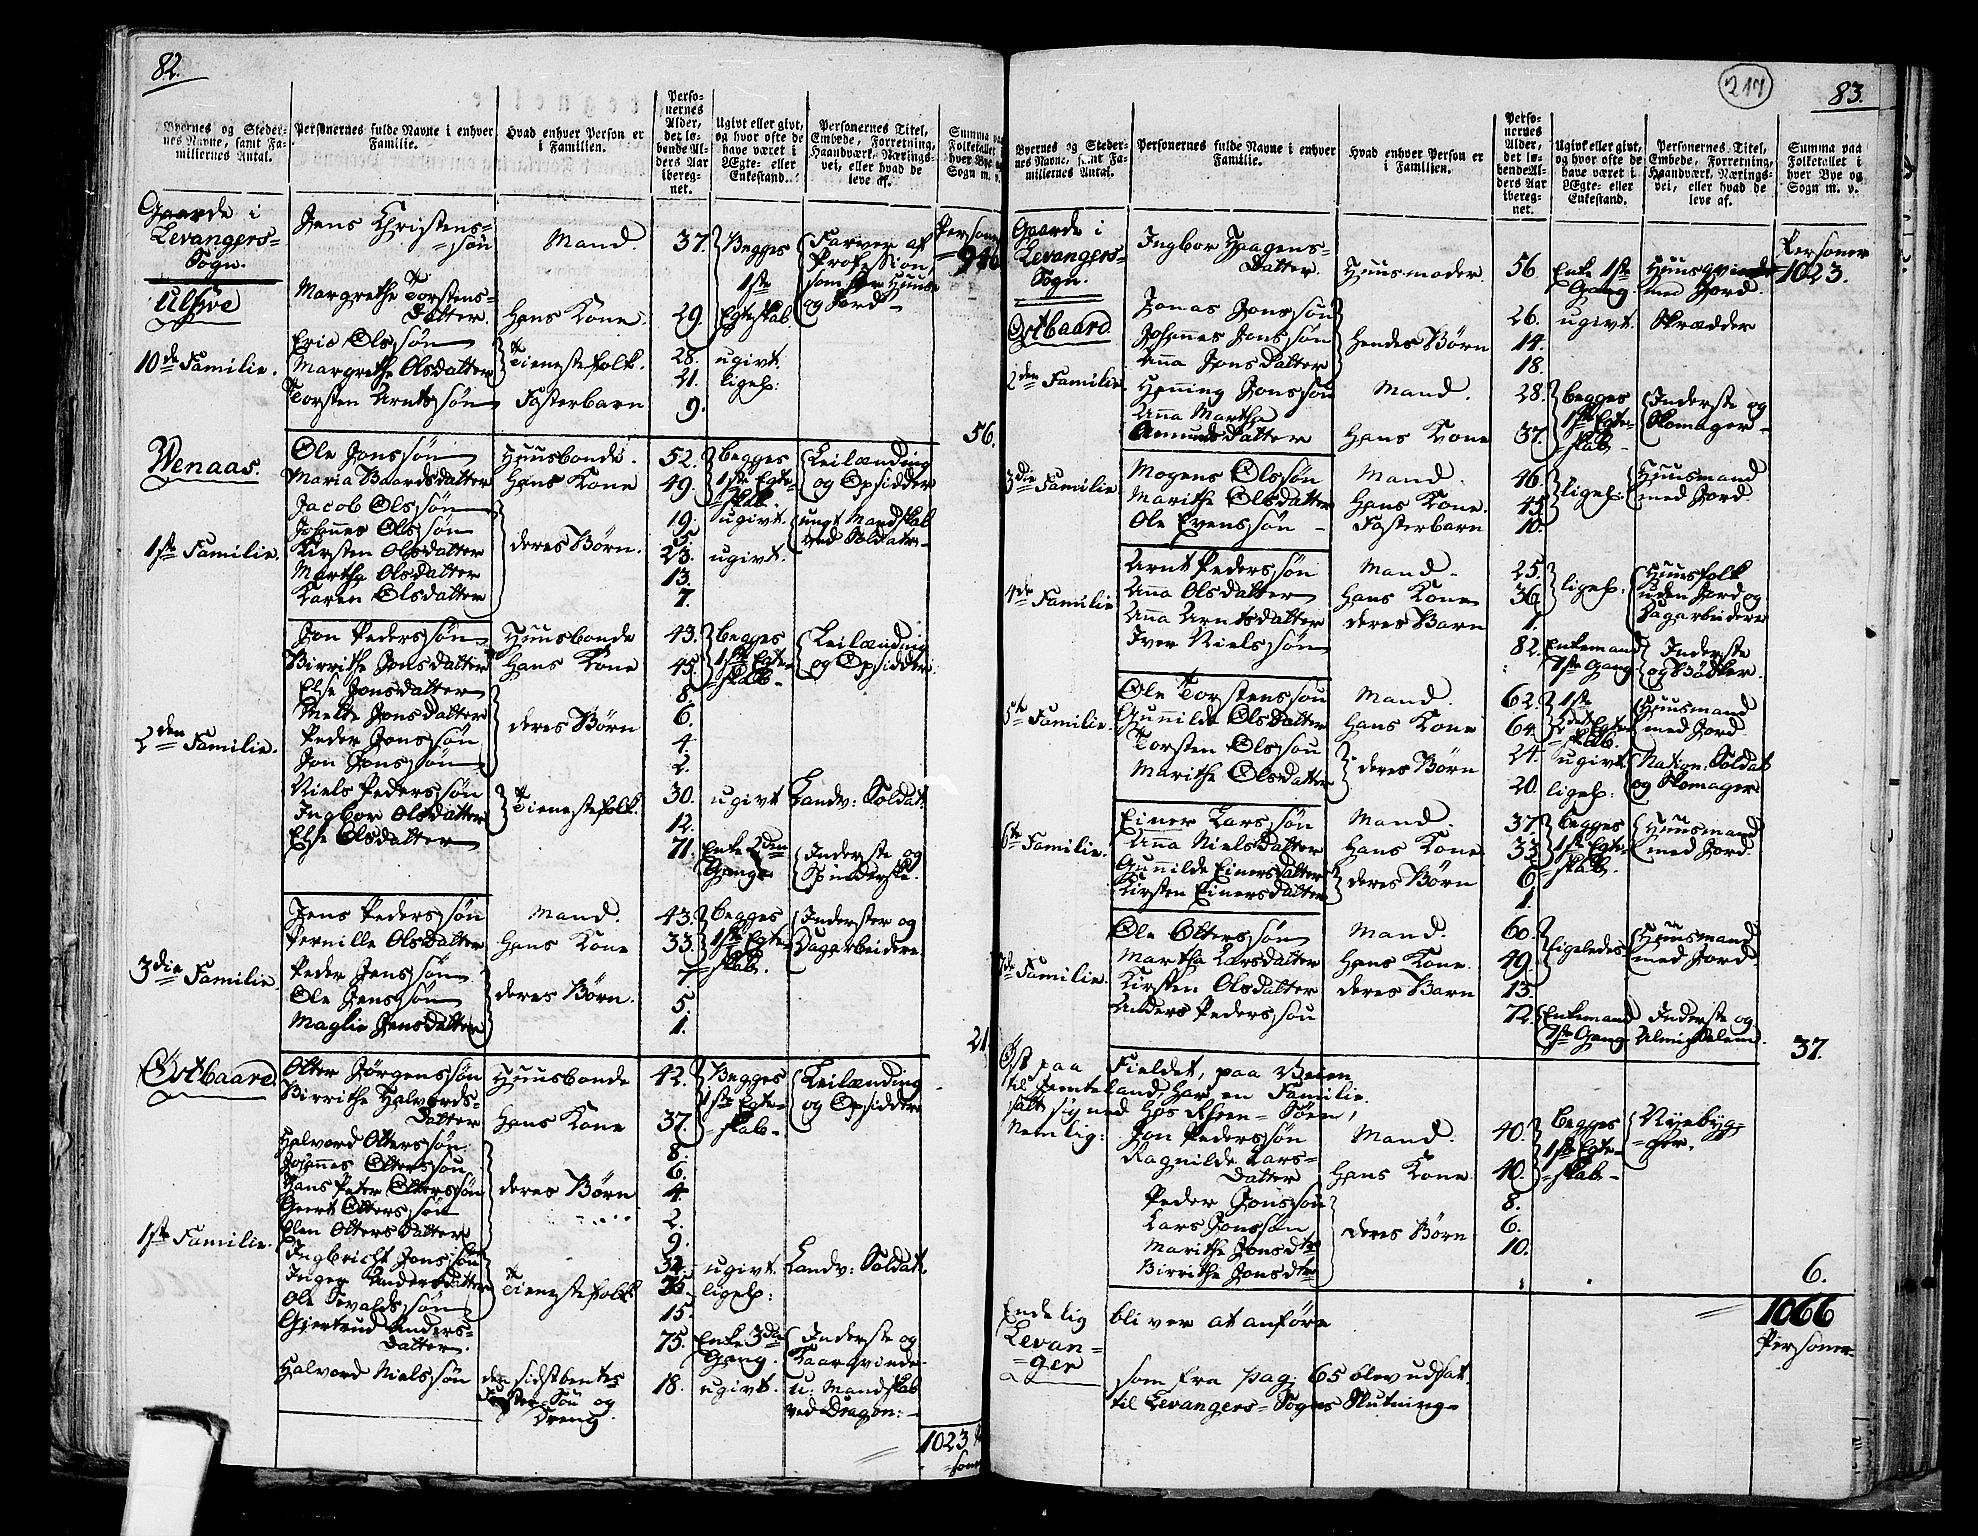 82.
Byernes og Steder-
nes Navne, samt Fa-
miliernes Antal.
Personernes fulde Navne i enhver
Familie.
Hvad enhver Person er
i Familien.
Perso-
nernes
Alder,
det lø-
bende Al-
ders Aar
iberegnet.
Ugivt eller givt,
og hvor ofte de
have været i
Ægte- eller
Enkestand.
Personernes Titel,
Embede, Forretning,
Haandværk, Nærings-
vei, eller hvad de
leve af.
Summa paa
Folketallet i
hver Bye og
Sogn m. v.
Gaarde i
Levangers-
Sogn.
Personer
946
Ulfive
10de Familie.
Jens Christens-
søn Mand. 37. Begges 1ste Egteskab. Farver af Profession, som har Huus og Jord
Margrethe Torstens-
Datter. Hans Kone. 29.
Eric Olssøn Tienestefolk. 28. ugivt.
Margrethe Olsdatter 21. ligel:
Torsten Arntssøn Fosterbarn 9.
56.
Wenaas.
1ste Familie.
Ole Jonssøn Huusbonde. 52. begges 1ste Egte-skab. Leilænding og Opsidder
Maria Baardsdatter Hans Kone 49.
Jacob Olssøn 19. ugivt. ungt Mandskab ved Soldater-
Johannes Olssøn 5.
Kirsten Olsdatter deres Børn. 23. ugivt.
Martha Olsdatter 13.
Karen Olsdatter 7.
2den Familie.
Jon Pederssøn Huusbonde 43. begges 1ste Egte-skab- Leilænding og Opsidder
Birrithe Jonsdatter Hans Kone 45.
Else Jonsdatter 8.
Melte Jonsdatter deres Børn 6.
Peder Jonssøn 4.
Jon Jonssøn 2.
Niels Pederssøn Tienestefolk. 30. ugivt Landv: Soldat.
Ingbor Olsdatter 12.
Else Olsdatter 71. Enke 2den Gang Inderste og Spinderske.
3die Familie.
Jens Pederssøn Mand. 43. begges 1ste Egte-skab. Inderster og Dagarbeidere
Pernille Olsdatter Hans Kone 33.
Peder Jenssøn 7.
Ole Jenssøn deres Børn. 5.
Maglie Jensdatter 1.
21
Østbaard.
1ste Familie.
Olter Jørgenssøn Huusbonde 42. Begges 1ste Egte-skab- Leilænding og Opsidder
Birrithe Halvords-
Datter Hans Kone 37.
Halvord Olterssøn 8.
Johannes Olterssøn 6.
Hans Peter Olterssøn deres Børn 4
Geert Olterssøn 2.
Elen Oltersdatter 9.
Ingbricht Jonssøn 34. ugivt. Landv: Soldat.
Inger Andersdatter Tienestefolk ligel:
Ole Sevaldssøn 15.
Gjertrud Anders-
Datter. 75. Enke 3die Gang. Inderste og Kaarqvinde-
Halvord Nielssøn den sidstbentes Søster-Søn og Dreng. 18. ugivt. u: Mandskab ved Dragon:-
1023 P
soner
217
83.
Byernes og Steder-
nes Navne, samt Fa-
miliernes Antal.
Personernes fulde Navne i enhver
Familie.
Hvad enhver Person er
i Familien.
Perso-
nernes
Alder,
det lø-
bende Al-
ders Aar
iberegnet.
Ugivt eller givt,
og hvor ofte de
have været i
Ægte- eller
Enkestand.
Personernes Titel,
Embede, Forretning,
Haandværk, Nærings-
vei, eller hvad de
leve af.
Summa paa
Folketallet i
hver Bye og
Sogn m. v.
Gaarde i
Levangers-
Sogn.
Personer
1023.
Østbaard.
Ingbor Haagens-
Datter. Huusmoder 56. Enke 1ste Gang. Huusqvinde med Jord.
Jonas Jonssøn 26. ugivt. Skrædder
Johannes Jonssøn Hendes Børn 14.
Anna Jonsdatter 18.
2den Familie.
Henning Jonssøn Mand. 28. begges 1ste Egte-skab Inderste og Skomager-
Anna Marthe
Amundsdatter Hans Kone 37.
3die Familie
Mogens Olssøn Mand. 46. ligel: Huusmand med Jord
Marithe Olsdatter Hans Kone. 45
Ole Evenssøn - Fosterbarn 10.
4de Familie
Arnt Pederssøn Mand. 25. ligel: Huusfolk uden Jord og Dagarbeidere
Anna Olsdatter Hans Kone 36
Anna Arntsdatter deres Barn 1.
Iver Nielssøn 82. Enkemand 1ste Gang Inderste og Bødker.
5te Familie.
Ole Torstenssøn Mand. 62. 1ste 2det Egteskab. Huusmand med Jord
Gunnilde Olsdatter Hans Kone 64.
Torsten Olssøn deres Børn 24. ugivt Nation: Soldat og Skomager
Marithe Olsdatter 20. ligel:
6te Familie.
Einer Larssøn Mand. 37. begges 1ste Egte-skab. Huusmand med Jord.
Anna Nielsdatter Hans Kone 33
Gunnilde Einersdatter deres Børn 6
Kirsten Einersdatter 1.
7de Familie.
Ole Olterssøn Mand. 60. ligeledes Huusmand med Jord.
Martha Larsdatter Hans Kone. 49.
Kirsten Olsdatter deres Barn 13.
Anders Pederssøn 72. Enkemand 1ste Gang Inderste og Almisselem.
37.
Øst paa Fieldet, paa Veien
til Jemteland, har en Familie
satt sig ned hos Rhen-Søen,
Nemlig:
Jon Pederssøn Mand. 40. begges 1ste Egte-skab- Nyebyg-
ger.
Ragnilde Lars-
Datter Hans Kone 40.
Peder Jonssøn 8.
Lars Jonssøn deres Børn 6.
Marithe Jonsdtr 10.
Birrithe Jonsdtr
6.
1066
Personer-
Endelig bliver at anføre
Levan-
ger
som fra pag: 65 blev udsat
til Levangers-Sogns Slutning-